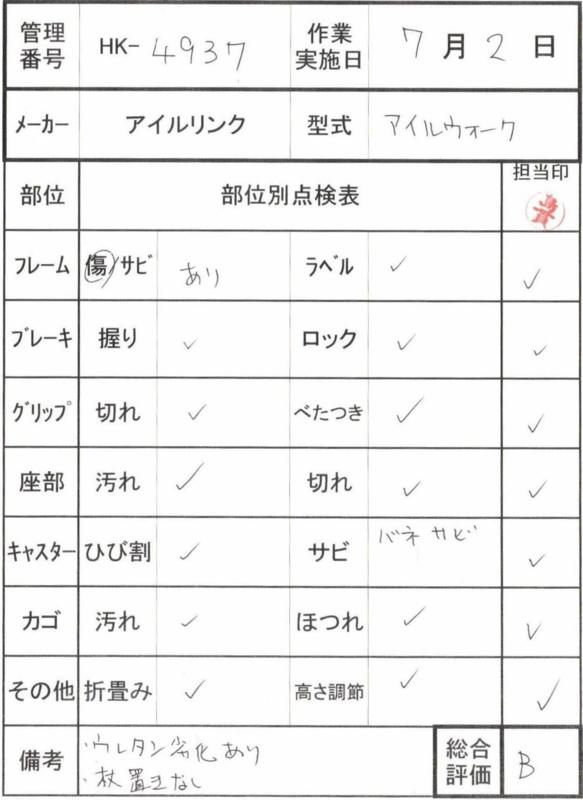 管理番号 HK-4937 作業実施日 7月2日
メーカー アイルリンク 型式 アイルウォーク
部位 部位別点検表 担当印
フレーム 傷/サビ あり ラベル ✓ ✓
ブレーキ 握り ✓ ロック ✓ ✓
グリップ 切れ ✓ べたつき ✓ ✓
座部 汚れ ✓ 切れ ✓ ✓
キャスター ひび割 ✓ サビ バネサビ ✓
カゴ 汚れ ✓ ほつれ ✓ ✓
その他 折畳み ✓ 高さ調節 ✓ ✓
備考 ・ウレタン劣化あり
・杖置きなし
総合評価 B